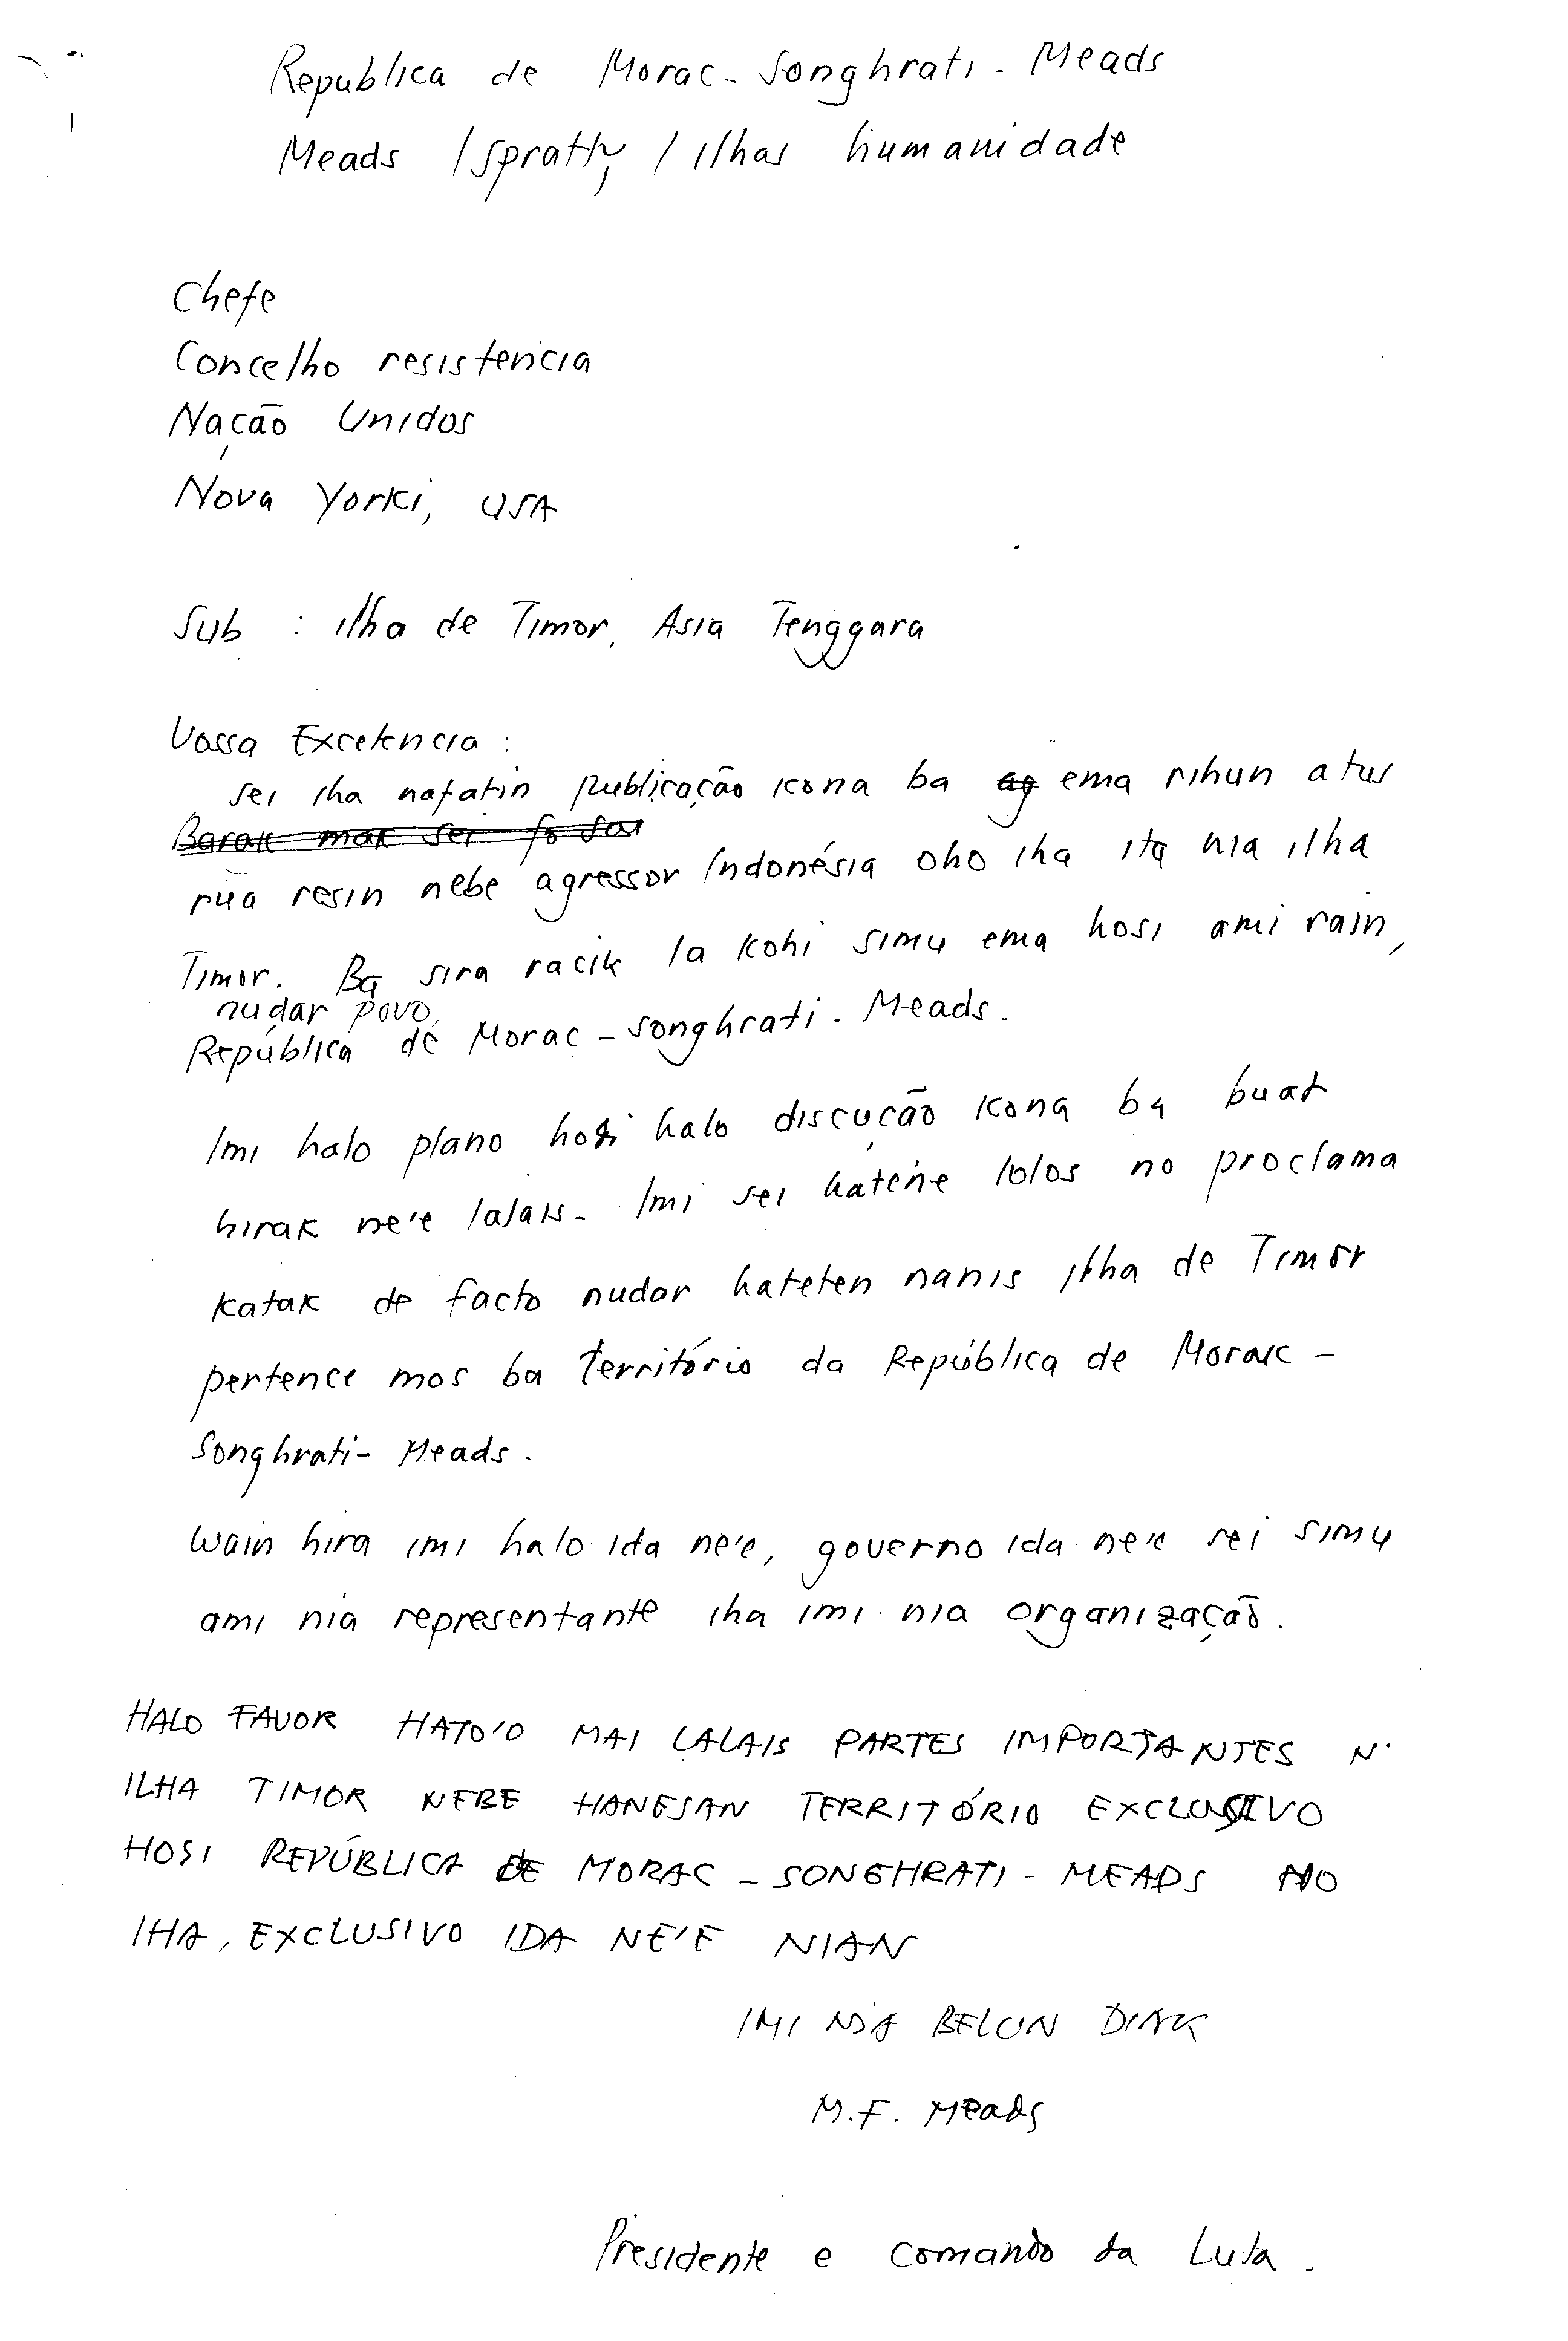 Republica de Morac-Songhrati-Meads
Meads / Spratly / Ilhas humanidade
Chefe
Concelho resistencia
Nação Unidos
Nova Yorki, USA
Sub : ilha de Timor, Asia Tenggara
Vossa Excelencia :
sei iha nafatin publicação kona ba ema rihun atus
Barak mak sei fo sai
rua resin nebe agressor Indonésia oho iha ita nia ilha
Timor. Ba sira racik la kohi simu ema hosi ami rain,
nudar povo
República de Morac-songhrati-Meads.
Imi halo plano hodi halo discução kona ba buat
hirak ne'e lalais. Imi sei hatene lolos no proclama
katak de facto nudar hateten nanis ilha de Timor
pertence mos ba território da República de Morac-
Songhrati-Meads.
Wain hira imi halo ida ne'e, governo ida ne'e sei simu
ami nia representante iha imi nia organização.
HALO FAVOR HATO'O MAI LALAIS PARTES IMPORTANTES N.
ILHA TIMOR NEBE HANESAN TERRITÓRIO EXCLUSIVO
HOSI REPÚBLICA DE MORAC-SONGHRATI-MEADS NO
IHA, EXCLUSIVO IDA NE'E NIAN
IMI NIA BELUN DIAK
M.F. Meads
Presidente e comando da Luta.